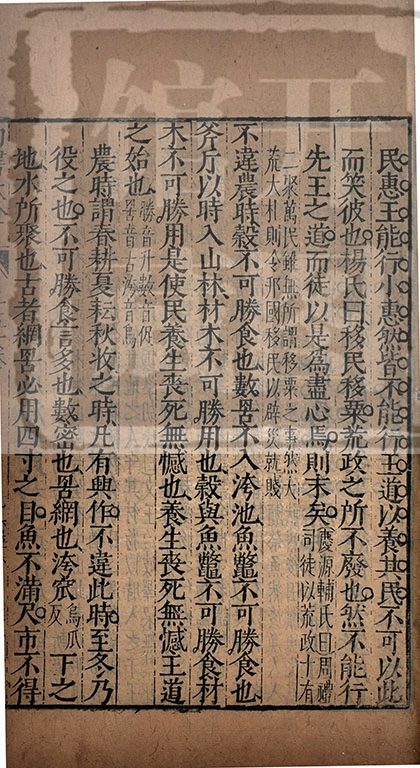 民惠王能行小惠然皆不能行王道以養其民不可以此
而笑彼也楊氏曰移民移粟荒政之所不廢也然不能行
先王之道而徒以是為盡心焉則末矣慶源輔氏曰周禮司徒以荒政十有
二聚萬民雖無所謂移粟之事然大荒大札則令邦國移民以辟災就賤
不違農時穀不可勝食也數罟不入洿池魚鼈不可勝食也
斧斤以時入山林材木不可勝用也穀與魚鼈不可勝食材
木不可勝用是使民養生喪死無憾也養生喪死無憾王道
之始也勝音升數音促罟音古洿音烏
農時謂春耕夏耘秋收之時凡有興作不違此時至冬乃
役之也不可勝食言多也數密也罟網也洿窊烏瓜反下之
地水所聚也古者網罟必用四寸之目魚不滿尺市不得